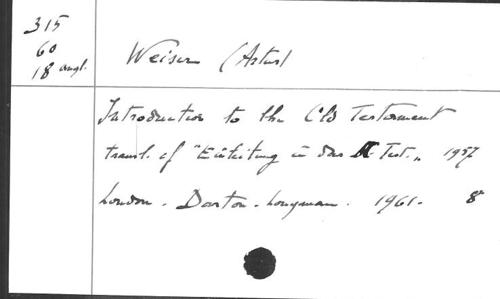 315
60
18 angl.
Weiser (Artur)
Introduction to the Old Testament
transl. of "Einleitung in das A. Test." 1957
London. Darton-Longman. 1961. 8°